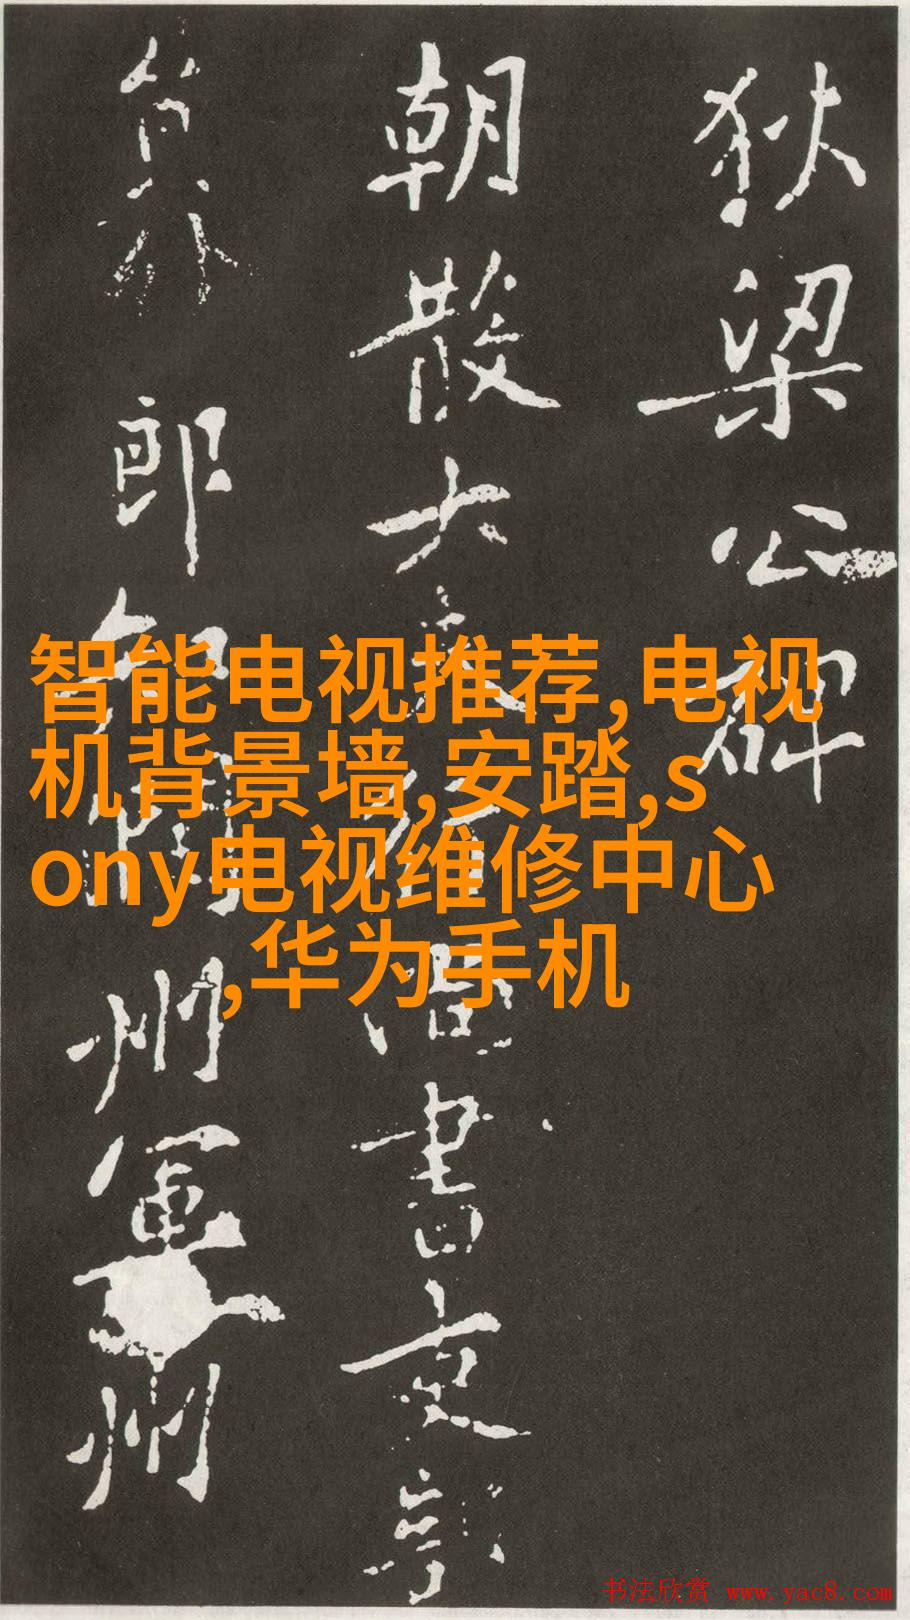 狄梁公碑
朝散大夫行尚書吏
員外郎知潤州軍
州
智能电视推荐,电视
机背景墙,安踏,s
ony电视维修中心
,华为手机
书法欣赏 www.yac8.com